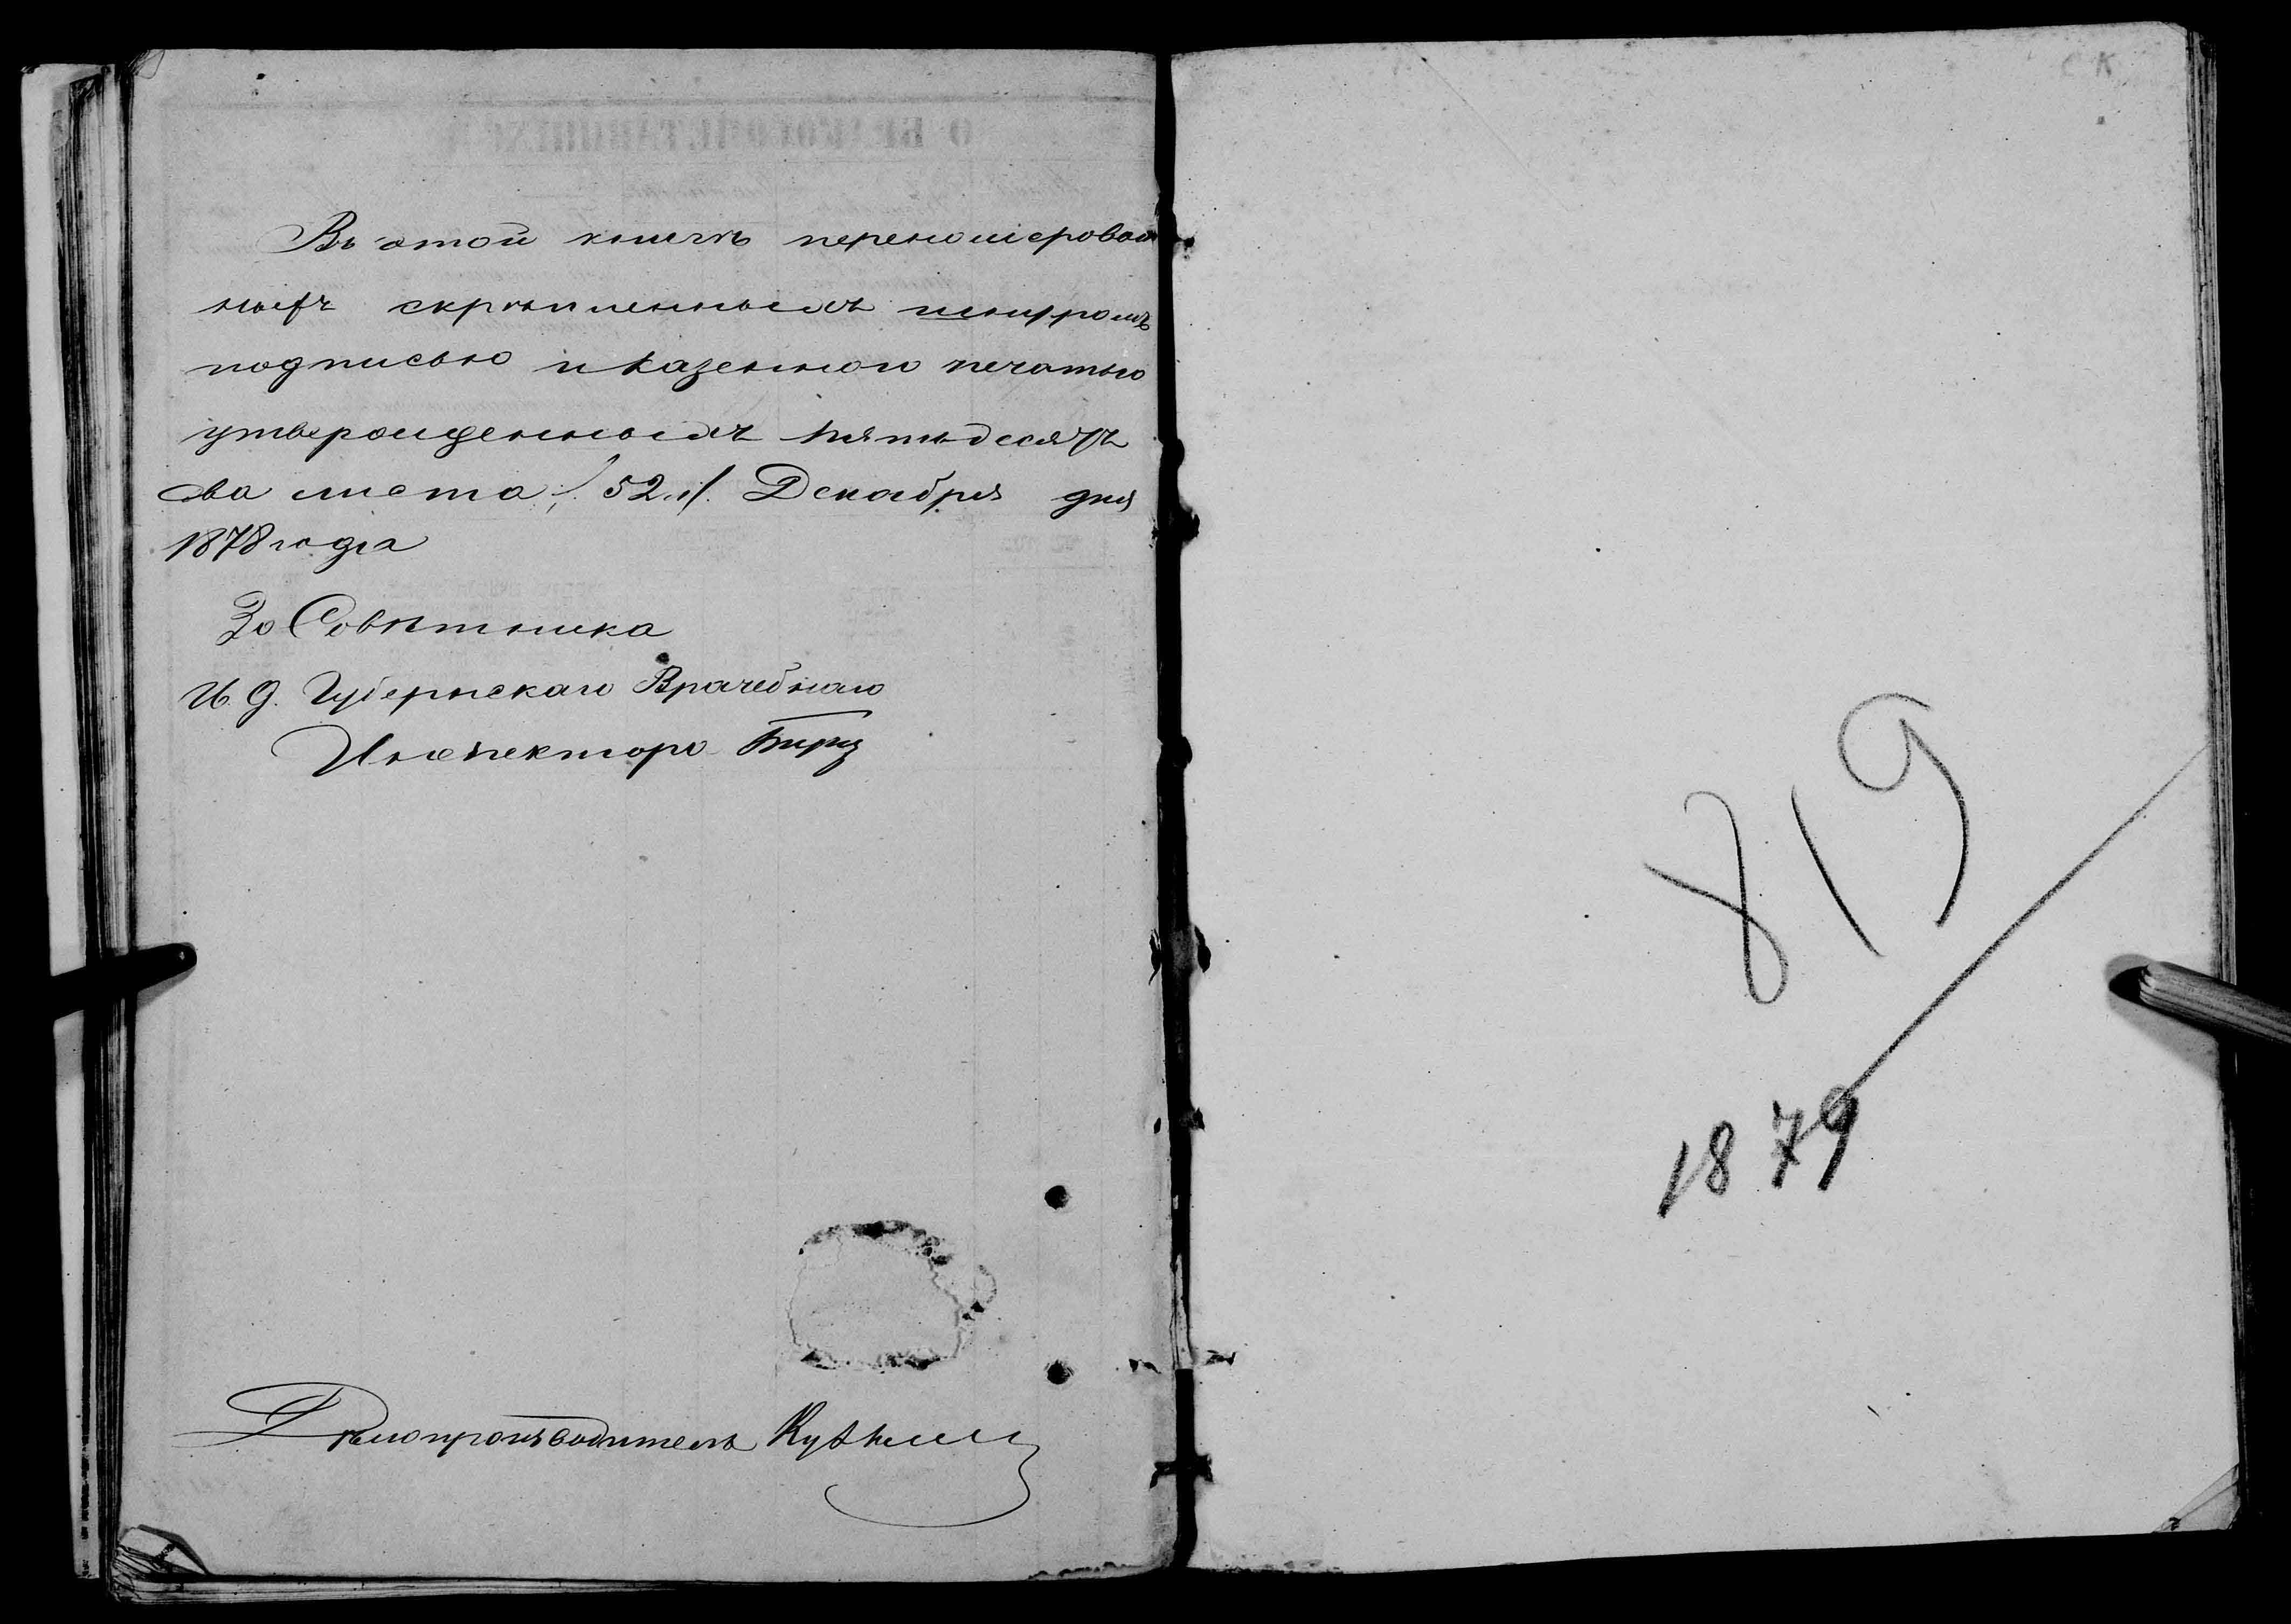 Въ этой книгѣ перенумерован
ныхъ скрѣпленныхъ шнуромъ
подписью и казенною печатью
утвержденныхъ пятьдесятъ
два листа /:52.:/. Декабря дня
1878 года
За Совѣтника
И. д. Губернскаго Врачебнаго
Инспектора
Дѣлопроизводитель
О БРАКОСОЧЕТАВШИХСЯ
СК
819
1879